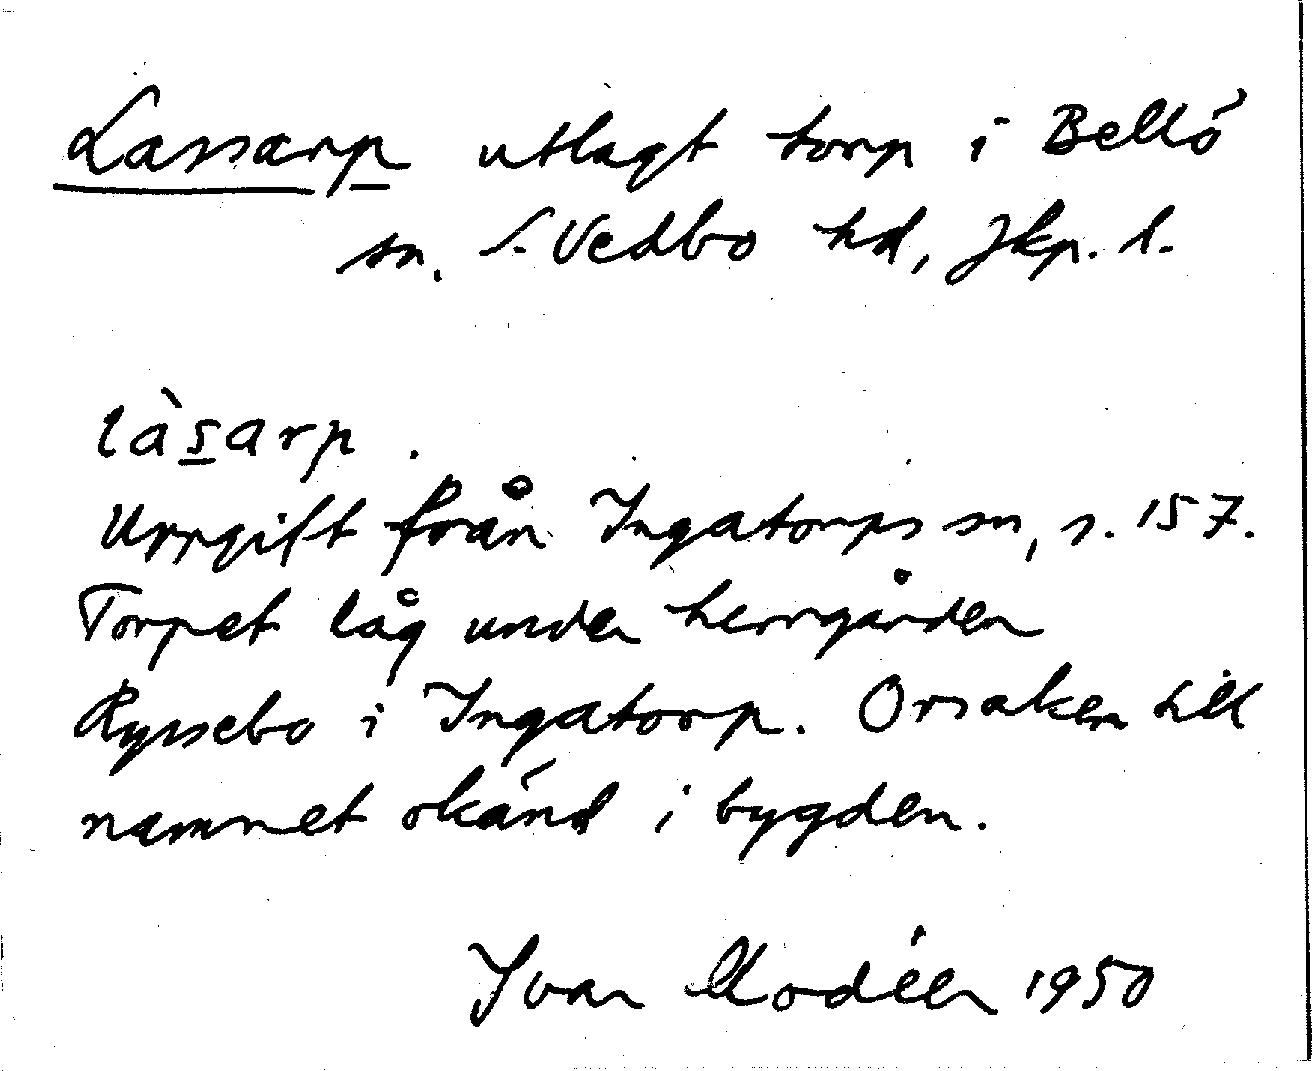 Lassarp utlagt torp i Bellö
sn. S. Vedbo hd, Jkp. l.
làs̲arp.
Uppgift från Ingatorps sn, s. 157.
Torpet låg under herrgården
Ryssebo i Ingatorp. Orsaken till
namnet okänd i bygden.
Ivar Modéer 1950